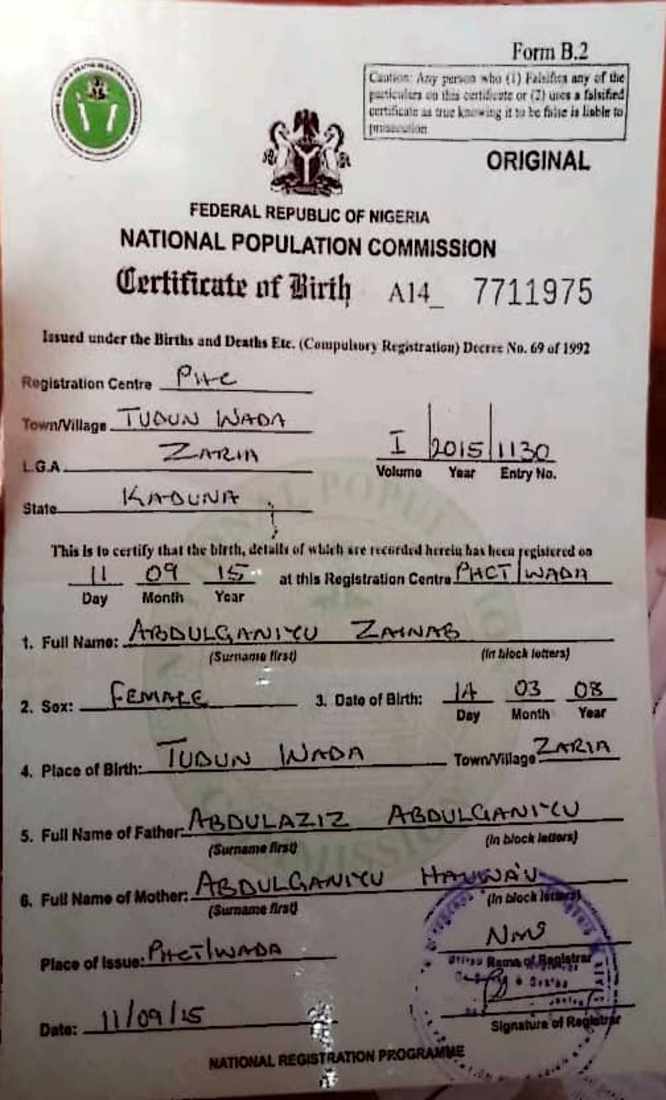 Form B.2
Caution: Any person who (1) Falsifies any of the
particulars on this certificate or (2) uses a falsified
certificate as true knowing it to be false is liable to
prosecution
ORIGINAL
FEDERAL REPUBLIC OF NIGERIA
NATIONAL POPULATION COMMISSION
Certificate of Birth A14_ 7711975
Issued under the Births and Deaths Etc. (Compulsory Registration) Decree No. 69 of 1992
Registration Centre PHC
Town/Village TUDUN WADA
L.G.A ZARIA
I 2015 1130
Volume Year Entry No.
State KADUNA
This is to certify that the birth, details of which are recorded herein has been registered on
11 09 15 at this Registration Centre PHCT/WADA
Day Month Year
1. Full Name: ABDULGANIYU ZAINAB
(Surname first) (In block letters)
2. Sex: FEMALE 3. Date of Birth: 14 03 08
Day Month Year
4. Place of Birth: TUDUN WADA Town/Village ZARIA
5. Full Name of Father: ABDULAZIZ ABDULGANIYU
(Surname first) (In block letters)
6. Full Name of Mother: ABDULGANIYU HAUWA'U
(Surname first) (In block letters)
Place of Issue: PHCT/WADA
Name of Registrar
Date: 11/09/15
Signature of Registrar
NATIONAL REGISTRATION PROGRAMME